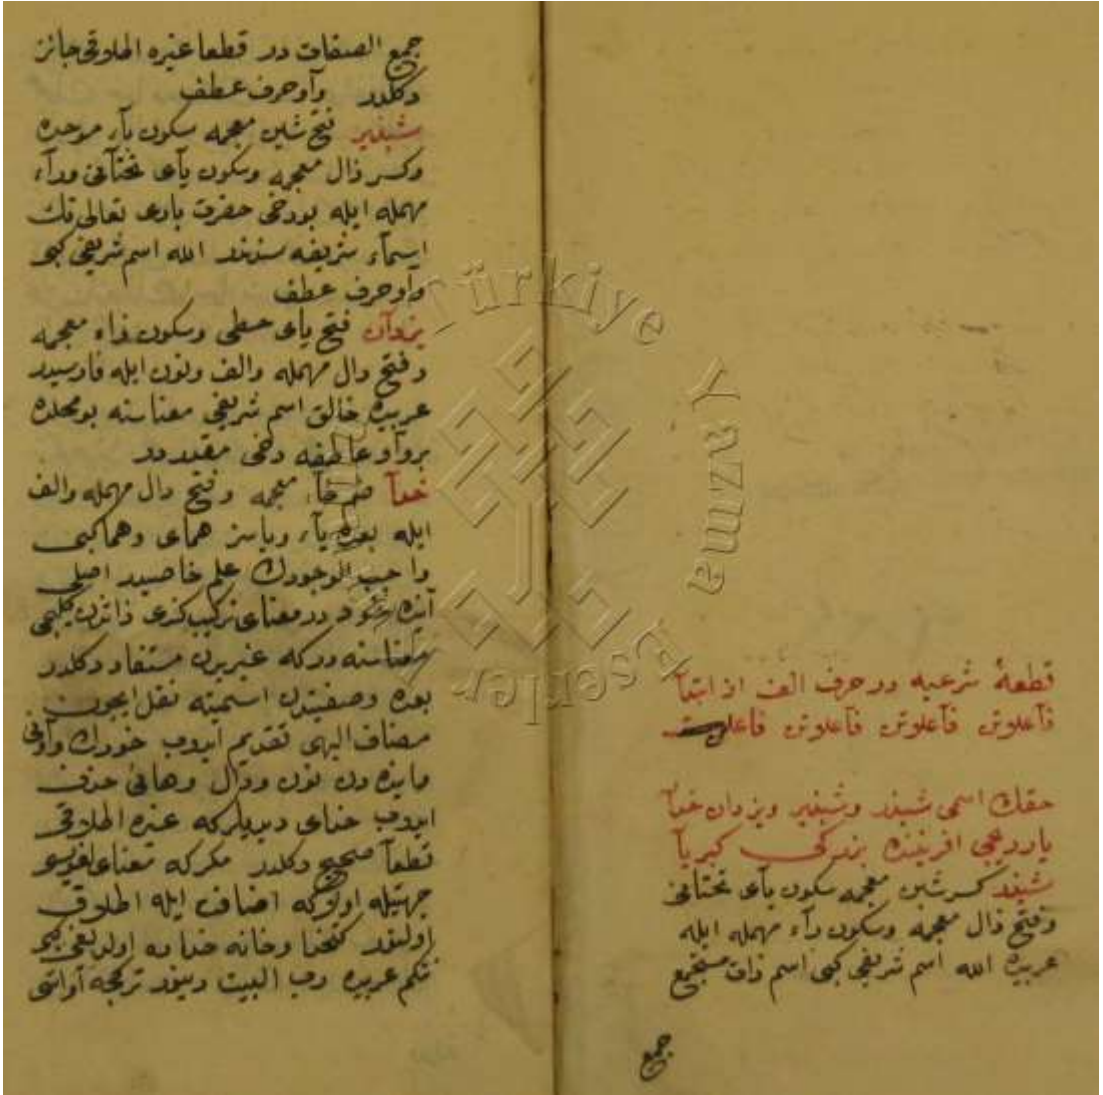 قطعهٔ شرعیه در حرف الف از ابتدا
فاعلاتن فاعلاتن فاعلاتن
حقك اسمی شیذر وشبذیر ویزدان خدا
یاردیجی افریننده بزرگی کبریا
شیذر کسر شین معجمه سکون یای تحتانی
وفتح ذال معجمه وسکون راء مهمله ایله
عربیده الله اسم شریفی کبی اسم ذات مستجمع
جمع
جمع الصفات در قطعا غیره اطلاقی جائز
دکلدر وآو حرف عطف
شبذیر فتح شین معجمه سکون باء موحده
وکسر ذال معجمه وسکون یای تحتانی وراء
مهمله ایله بودخی حضرت باری تعالی نك
اسماء شریفه سندندر الله اسم شریفی کبی
وآو حرف عطف
یزدان فتح یای حطی وسکون زاء معجمه
وفتح دال مهمله والف ونون ایله فارسیدر
عربیده خالق اسم شریفی معناسنه بومحلده
برواو عاطفه دخی مقدردر
خدا ضم خاء معجمه وفتح دال مهمله والف
ایله بعده یاء ویاسز همای وهما کبی
واجب الوجودك علم خاصیدر اصلی
آینده خود در معنای ترکیب کندی ذاتدن کلیجی
معناسنه در که غیریدن مستفاد دکلدر
بعده وصفیتدن اسمیته نقل ایچون
مضاف الیهی تقدیم ایدوب خودك واونی
واینده دن نون ودال وهائی حذف
ایدوب خدای دیدیلر که غیره اطلاقی
قطعا صحیح دکلدر مکر که معنای لغویسی
جهتیله اوله که اضافت ایله اطلاق
اولنور کتخدا وخانه خدا ده اولدیغی کبی
نتکم عربیده رب البیت دینور ترکجه او اسی